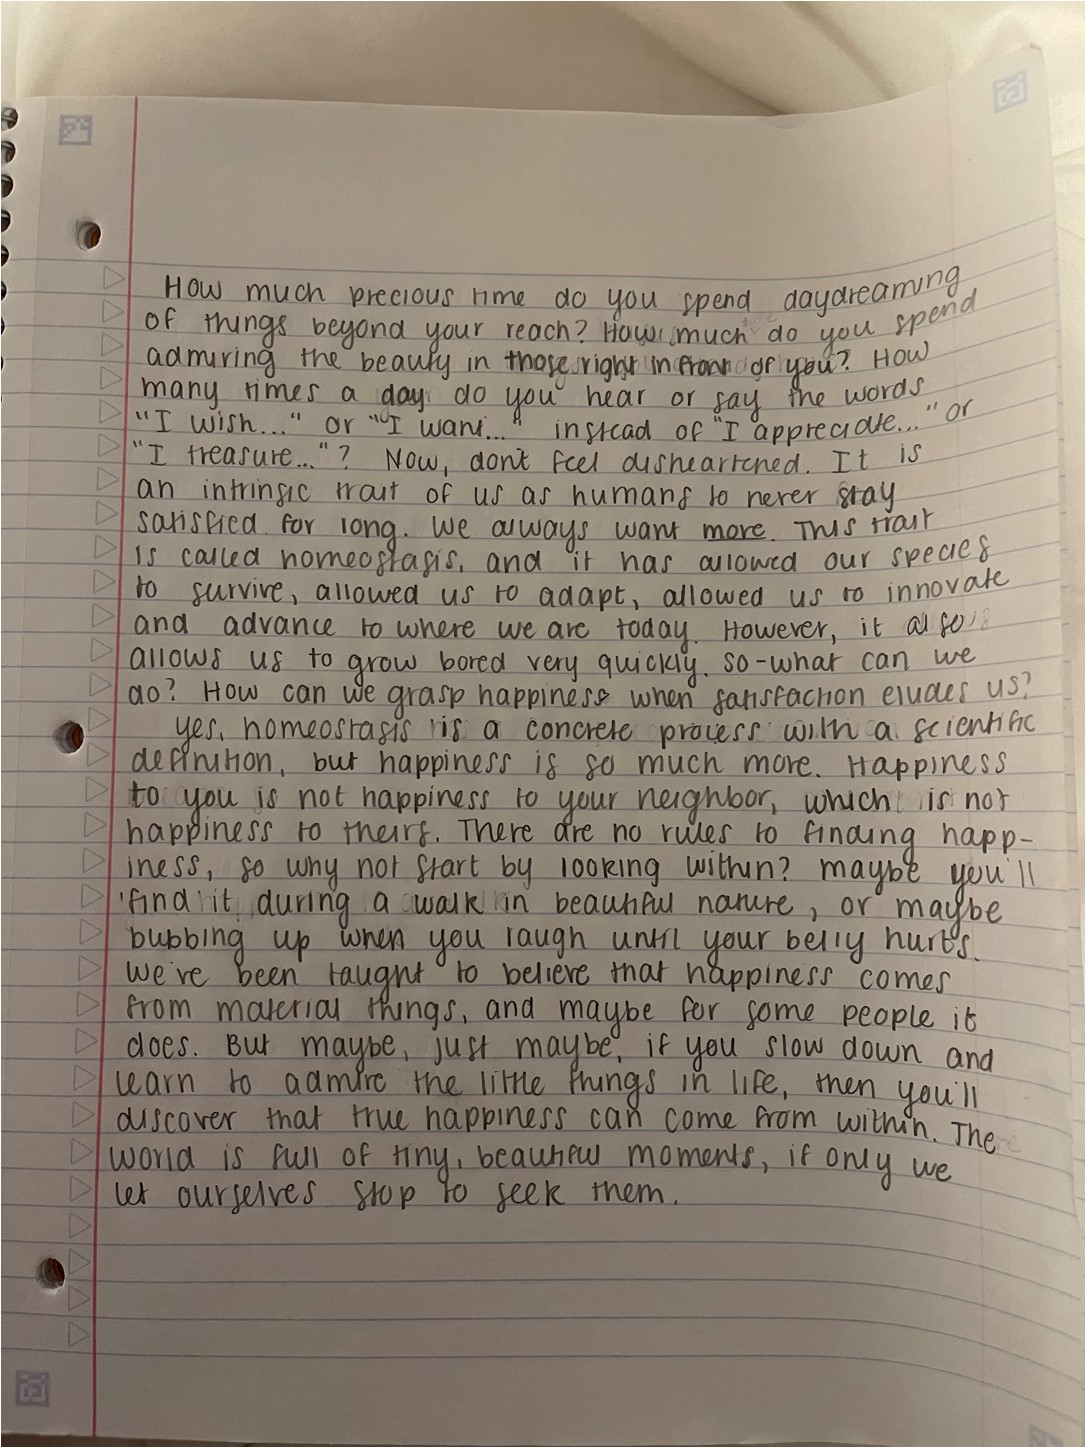 How much precious time do you spend daydreaming
of things beyond your reach? How much do you spend
admiring the beauty in those right in front of you? How
many times a day do you hear or say the words
"I wish..." or "I want..." instead of "I appreciate..." or
"I treasure..."? Now, don't feel disheartened. It is
an intrinsic trait of us as humans to never stay
satisfied for long. We always want more. This trait
is called homeostasis, and it has allowed our species
to survive, allowed us to adapt, allowed us to innovate
and advance to where we are today. However, it also
allows us to grow bored very quickly. So-what can we
do? How can we grasp happiness when satisfaction eludes us?
Yes, homeostasis is a concrete process with a scientific
definition, but happiness is so much more. Happiness
to you is not happiness to your neighbor, which is not
happiness to theirs. There are no rules to finding happ-
iness, so why not start by looking within? Maybe you'll
find it during a walk in beautiful nature, or maybe
bubbing up when you laugh until your belly hurts.
We've been taught to believe that happiness comes
from material things, and maybe for some people it
does. But maybe, just maybe, if you slow down and
learn to admire the little things in life, then you'll
discover that true happiness can come from within. The
world is full of tiny, beautiful moments, if only we
let ourselves stop to seek them.